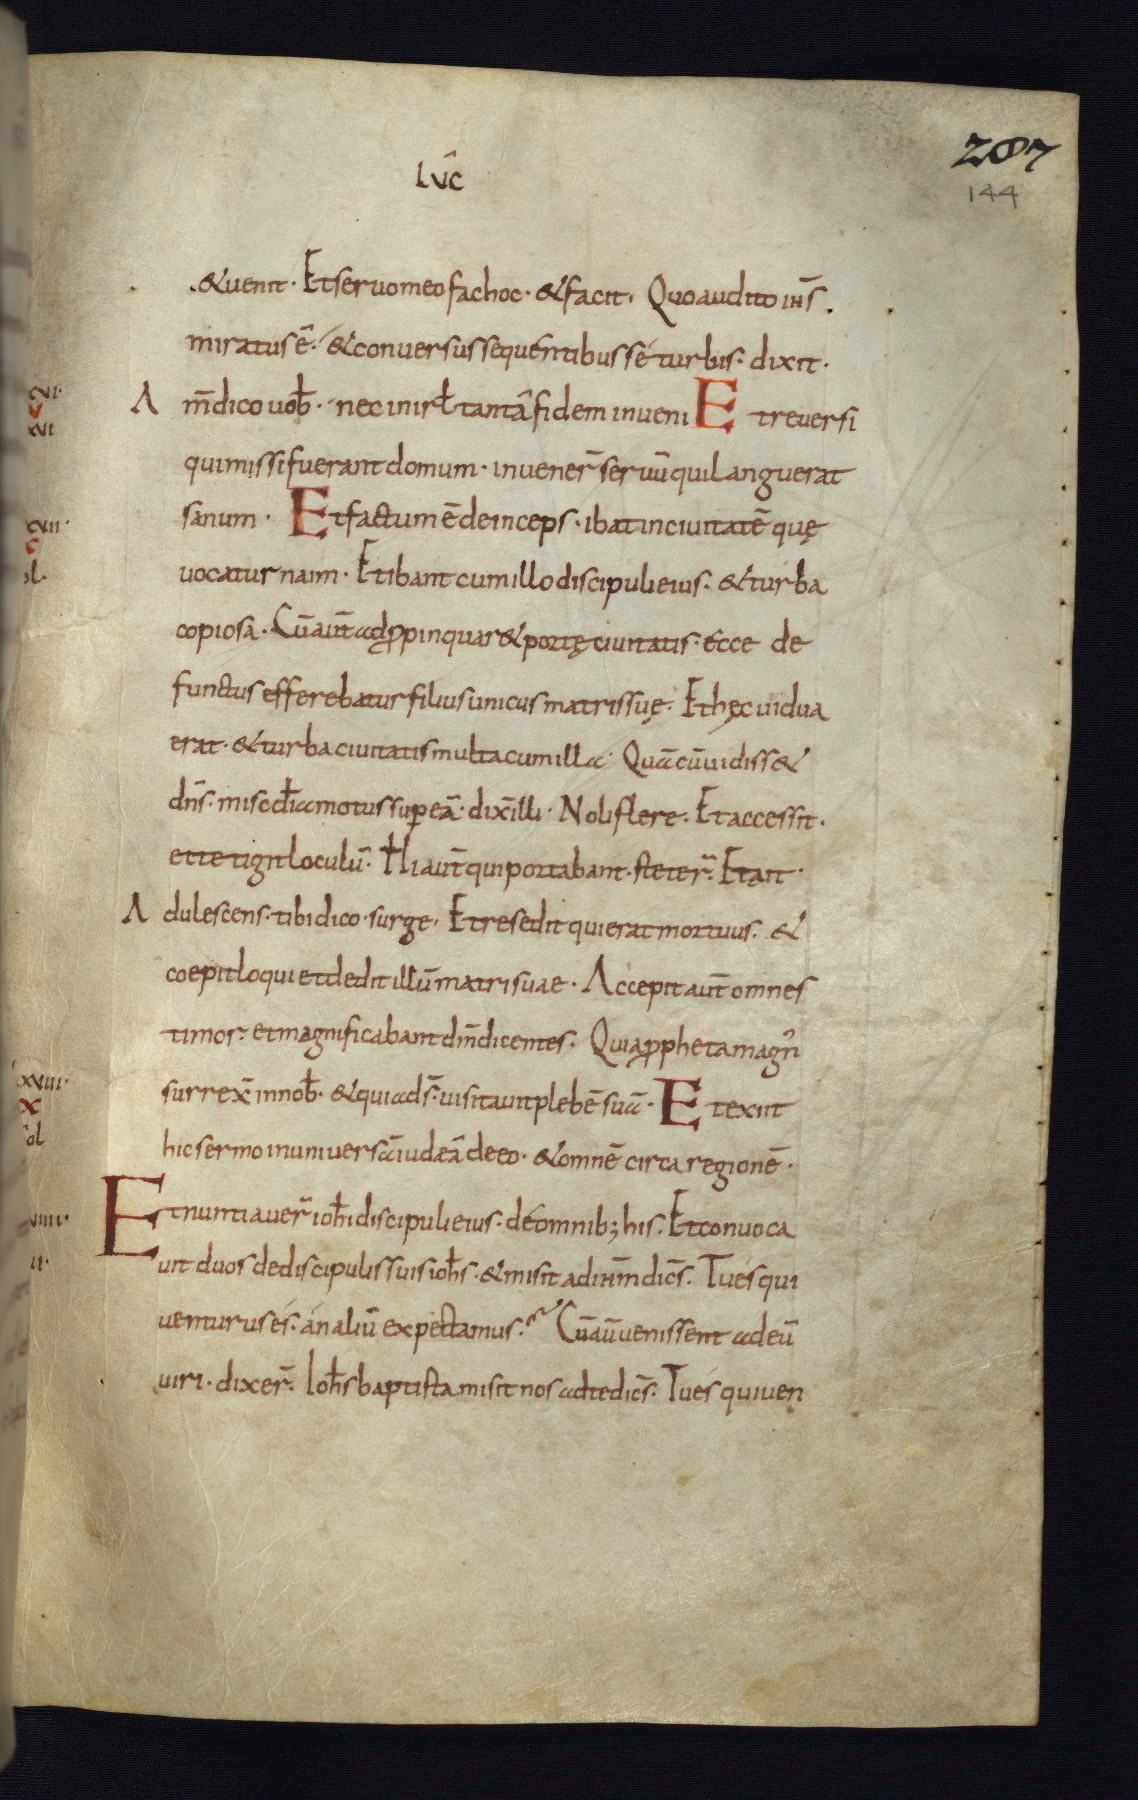 207
144
lūc
& uenit· Et seruo meo fac hoc· & facit· Quo audito ih̄s
miratus ē· & conuersus sequentibus se turbis· dixit·
Am̄ dico uob̄· nec in isrl̄ tantā fidem inueni Et reuersi
qui missi fuerant domum· inuener̄ seruū qui languerat
sanum· Et factum ē deinceps· ibat in ciuitatē quę
uocatur naim· Et ibant cum illo discipuli eius· & turba
copiosa· Cū aut̄ adpropinquar& portę ciuitatis· ecce de
functus efferebatur filius unicus matris suę· Et hęc uidua
erat· & turba ciuitatis multa cum illa· Quā cū uidiss&
dn̄s· miscd̄ia motus super eā· dix̄ illi· Noli flere· Et accessit·
et tetigit loculū· Hi aut̄ qui portabant· steter̄· Et ait·
Adulescens· tibi dico· surge· Et resedit qui erat mortuus· &
coepit loqui et dedit illū matri suae· Accepit aut̄ omnes
timor· et magnificabant dm̄ dicentes· Quia propheta magn̄
surrex̄ in nob̄· & quia ds̄· uisitauit plebē suā· Et exiit
hic sermo in uniuersā iudæā de eo· & omnē circa regionē·
Et nuntiauer̄ ioh̄i discipuli eius· de omnib; his· Et conuoca
uit duos de discipulis suis ioh̄s· & misit ad ih̄m dic̄s· Tu es qui
uenturus es· an aliū expectamus· Cū aū uenissent ad eū
uiri· dixer̄· Ioh̄s baptista misit nos ad te dic̄s· Tu es qui uen